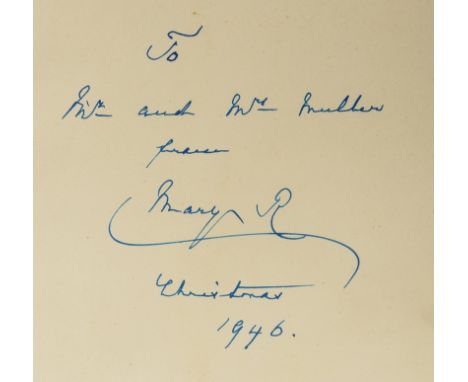 To
Mr and Mrs Muller
from
Mary R
Christmas
1946.